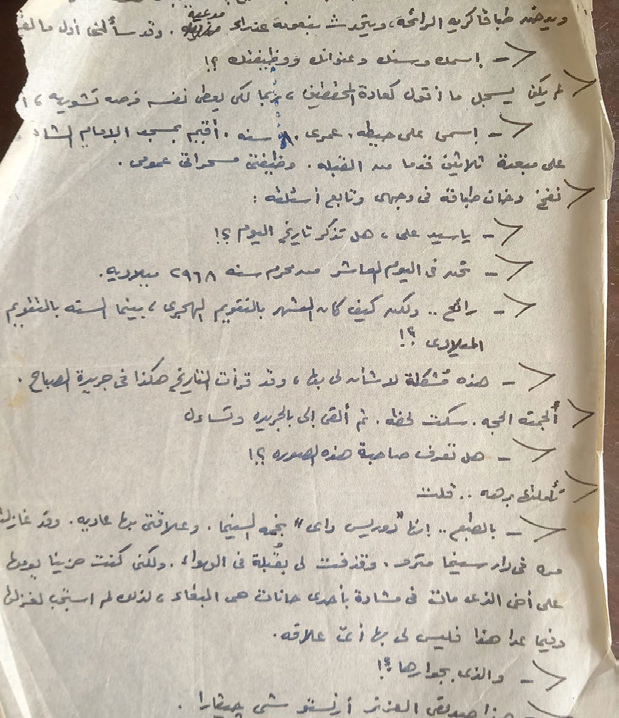 ويدخن طباقا كريه الرائحة، ويتحدث بنعومة عذراء مدعية. وقد سألنى أول ما
- اسمك وسنك وعنوانك ووظيفتك ؟!
لم يكن يسجل ما أقول كعادة المحققين، ربما لكى يعطى نفسه فرصه تشويه
- اسمى على حيطه. عمرى ٠٨ سنه. أقيم بمسجد الإمام الشاذ
على مبعدة ثلاثين قدما من القبله. وظيفتى مسحراتى عمومى.
نفخ دخان طباقه فى وجهى وتابع أسئلته :
- ياسيد على، هل تذكر تاريخ اليوم ؟!
- نحن فى اليوم العاشر من محرم سنه ٢٩٦٨ ميلاديه.
- رائع .. ولكن كيف كان الشهر بالتقويم الهجرى، بينما السنه بالتقويم
الميلادى ؟!
- هذه مشكلة لا شأن لى بها، وقد قرأت التاريخ هكذا فى جريدة الصباح.
ألجمته الحجه. سكت لحظه. ثم ألقى إلى بالجريده وتساءل
- هل تعرف صاحبة هذه الصوره ؟!
تأملتها برهه .. قلت
- بالطبع .. إنها "دوريس داى" نجمه السينما. وعلاقتى بها عاديه. وقد غازلتنا
مره فى دار سينما مترو. وقذفت لى بقُبلة فى الهواء. ولكنى كنت حزينا يومها
على أخى الذى مات فى مشادة بأحدى حانات حى البغاء، لذلك لم استجب لغزلها
وفيما عدا هذا فليس لى بها أى علاقه.
- والذى بجوارها ؟!
- هذا صديقى العزيز أرنستو شى جيفارا.